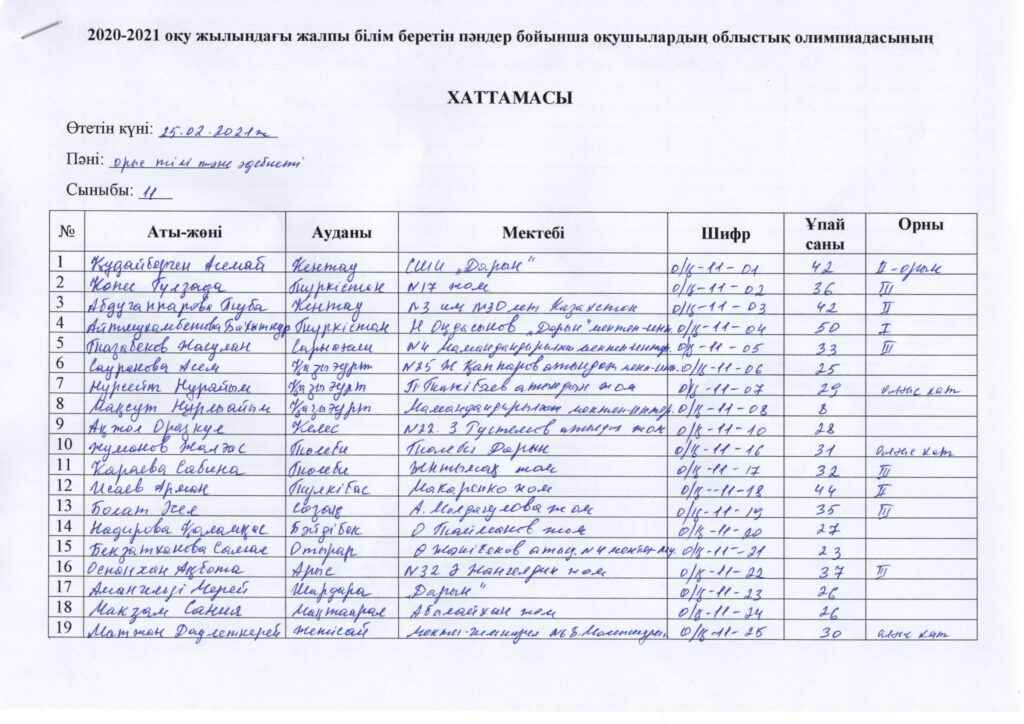 2020-2021 оқу жылындағы жалпы білім беретін пәндер бойынша оқушылардың облыстық олимпиадасының
ХАТТАМАСЫ
Өтетін күні: 25.02.2021ж
Пәні: орыс тілі және әдебиеті
Сыныбы: 11
№ Аты-жөні Ауданы Мектебі Шифр Ұпай саны Орны
1 Құдайберген Асемай Кентау СШИ „Дарын" О/Қ-11-01 42 II-орын
2 Копес Гулзада Түркістан №17 жом О/Қ-11-02 36 III
3 Абдуғаппарова Туба Кентау №3 им №30 лет Казахстан О/Қ-11-03 42 II
4 Айтмухамбетова Түркістан Н Оңдасынов „Дарын" мектеп-инт. О/Қ-11-04 50 I
5 Тазабеков Жасулан Сарыағаш №4 Мамандандырылған мектеп-интер. О/Қ-11-05 33 III
6 Сауранова Асем Қазығұрт №25 Ж Қаппаров атындағы О/Қ-11-06 25
7 Нурсейт Нұрайым Қазығұрт атындағы жом О/Қ-11-07 29 алғыс хат
8 Мақсут Қазығұрт Мамандандырылған мектеп-интер. О/Қ-11-08 8
9 Ақжол Оразкул Келес №22. З Рустемов атынд жом О/Қ-11-10 28
10 Жуманов Жалғас Төлеби Төлеби Дарын О/Қ-11-16 31 алғыс хат
11 Караева Сабина Төлеби Ынтымақ жом О/Қ-11-17 32 III
12 Исаев Арман Түлкібас Макаренко жом О/Қ-11-18 44 II
13 Болат Созақ А. Молдагулова жом О/Қ-11-19 35 III
14 Надирова Қаламқас Бәйдібек О Тайманов жом О/Қ-11-20 27
15 Бекзатханова Самал Отырар Ө Жәнібеков атын. №4 мектеп О/Қ-11-21 23
16 Оспанхан Ақбота Арыс №32 Ә Жангелдин жом О/Қ-11-22 37 III
17 Амангелді Мерей Шардара Дарын" О/Қ-11-23 26
18 Макзам Сания Мақтаарал Абылайхан жом О/Қ-11-24 26
19 Матжан Даулеткерей Жетісай мектеп-гимназия №8 О/Қ-11-25 30 алғыс хат